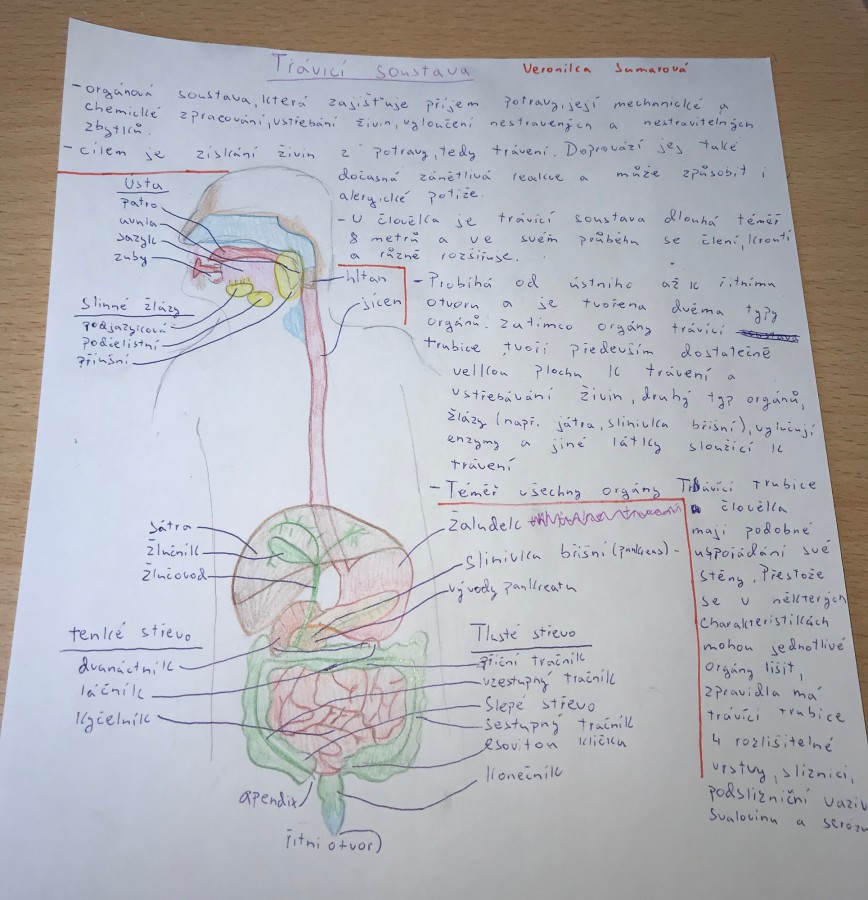 Trávicí soustava
Veronika Sumarová
- orgánová soustava, která zajišťuje příjem potravy, její mechanické a
chemické zpracování, vstřebání živin, vyloučení nestravených a nestravitelných
zbytků.
- cílem je získání živin z potravy, tedy trávení. Doprovází jej také
dočasná zánětlivá reakce a může způsobit i
alergické potíže.
- U člověka je trávicí soustava dlouhá téměř
8 metrů a ve svém průběhu se člení, kroutí
a různě rozšiřuje.
- Probíhá od ústního až k řitnímu
otvoru a je tvořena dvěma typy
orgánů. Zatímco orgány trávící
trubice tvoří především dostatečně
velkou plochu k trávení a
vstřebávání živin, druhý typ orgánů,
žlázy (např. játra, slinivka břišní), vylučují
enzymy a jiné látky sloužící k
trávení
- Téměř všechny orgány Trávící trubice
u člověka
mají podobné
uspojádání své
stěny. Přestože
se v některých
charakteristikách
mohou jednotlivé
orgány lišit,
zpravidla má
trávící trubice
4 rozlišitelné
vrstvy, sliznici,
podslizniční vaziv
svalovinu a seróz
Ústa
patro
uvula
jazyk
zuby
Slinné žlázy
podjazyková
podčelistní
příušní
hltan
jícen
játra
žlučník
žlučovod
Žaludek
slinivka břišní (pankreas) -
vývody pankreatu
tenké střevo
dvanáctník
lačník
kyčelník
Tlusté střevo
příční tračník
vzestupný tračník
Slepé střevo
sestupný tračník
esovitou klička
konečník
apendix
řitní otvor